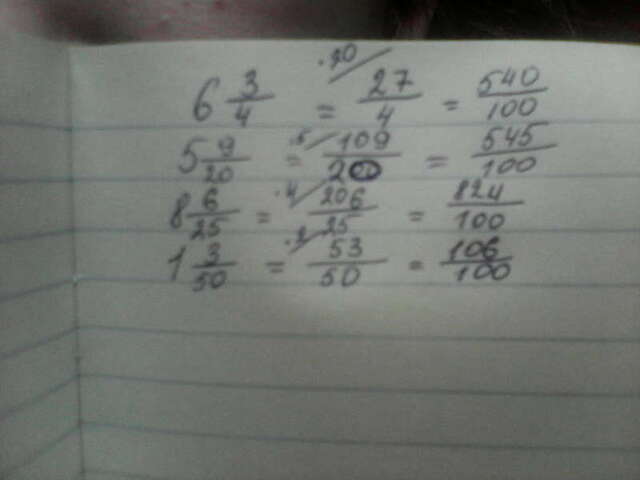 6 3/4 = ·20/ 27/4 = 540/100
5 9/20 = ·5/ 109/20 = 545/100
8 6/25 = ·4/ 206/25 = 824/100
1 3/50 = ·2/ 53/50 = 106/100